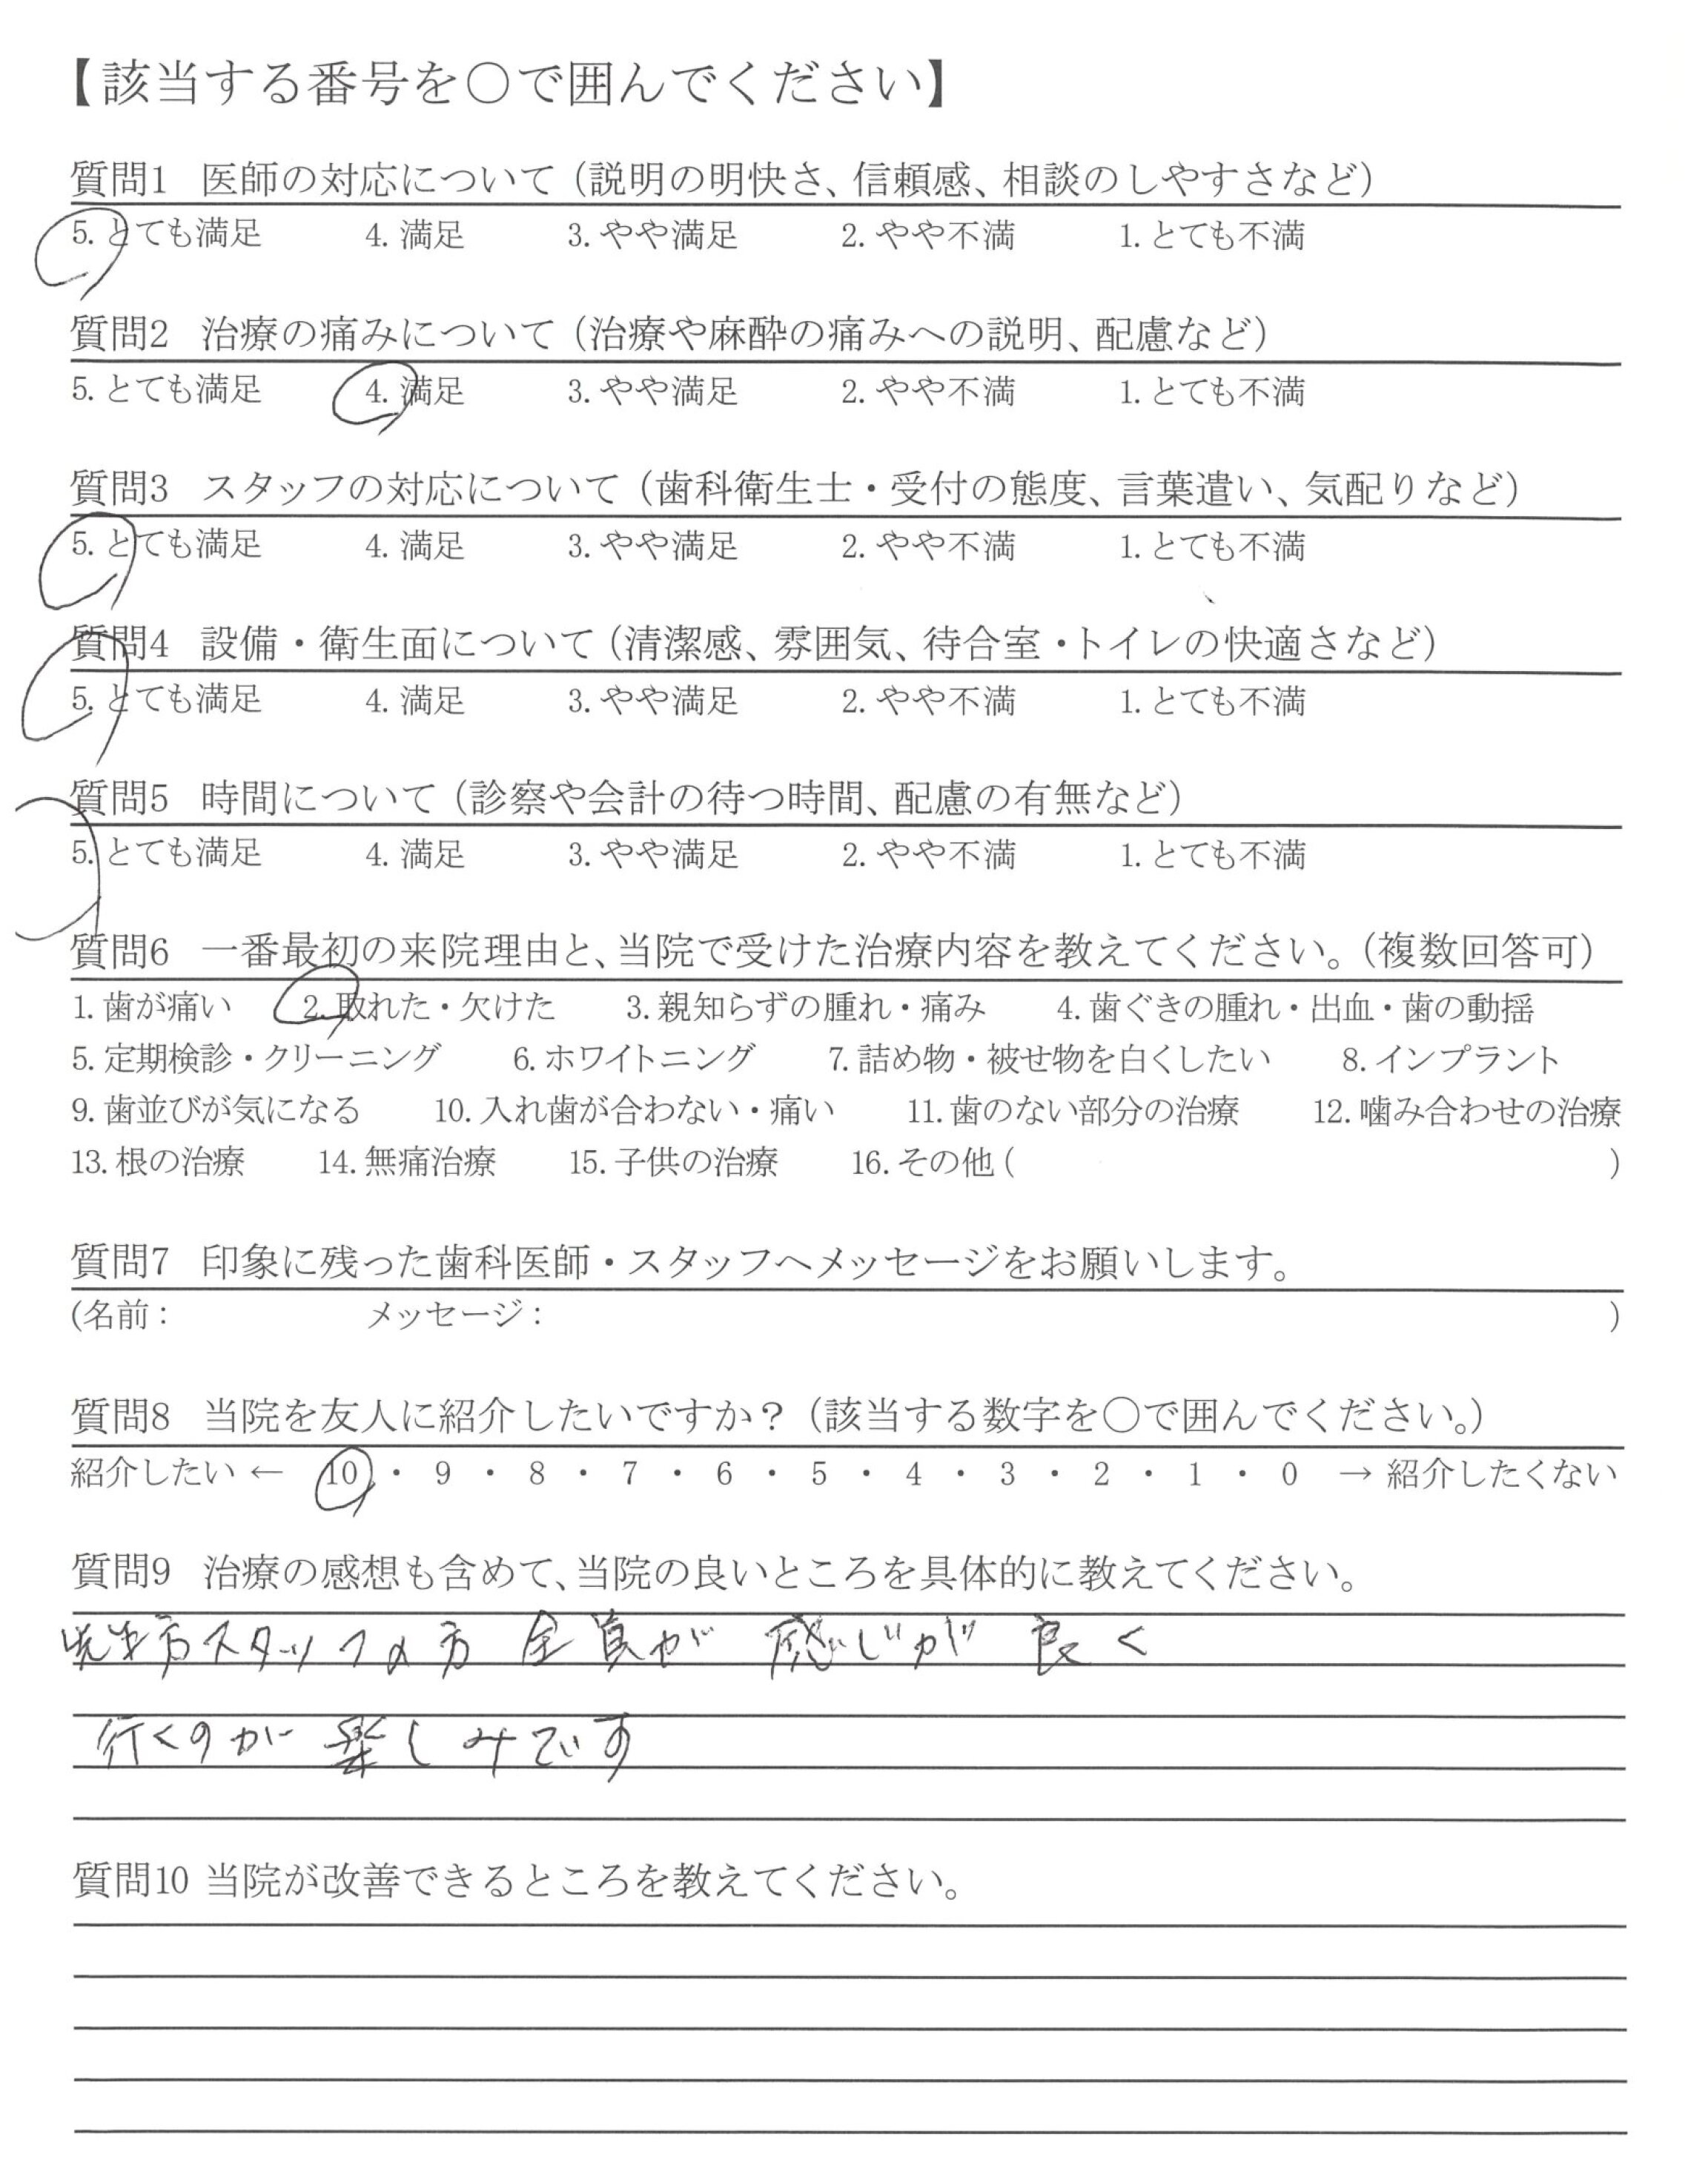 【該当する番号を〇で囲んでください】
質問1 医師の対応について（説明の明快さ、信頼感、相談のしやすさなど）
5. とても満足 4. 満足 3. やや満足 2. やや不満 1. とても不満
質問2 治療の痛みについて（治療や麻酔の痛みへの説明、配慮など）
5. とても満足 4. 満足 3. やや満足 2. やや不満 1. とても不満
質問3 スタッフの対応について（歯科衛生士・受付の態度、言葉遣い、気配りなど）
5. とても満足 4. 満足 3. やや満足 2. やや不満 1. とても不満
質問4 設備・衛生面について（清潔感、雰囲気、待合室・トイレの快適さなど）
5. とても満足 4. 満足 3. やや満足 2. やや不満 1. とても不満
質問5 時間について（診察や会計の待つ時間、配慮の有無など）
5. とても満足 4. 満足 3. やや満足 2. やや不満 1. とても不満
質問6 一番最初の来院理由と、当院で受けた治療内容を教えてください。（複数回答可）
1. 歯が痛い 2. 取れた・欠けた 3. 親知らずの腫れ・痛み 4. 歯ぐきの腫れ・出血・歯の動揺
5. 定期検診・クリーニング 6. ホワイトニング 7. 詰め物・被せ物を白くしたい 8. インプラント
9. 歯並びが気になる 10. 入れ歯が合わない・痛い 11. 歯のない部分の治療 12. 噛み合わせの治療
13. 根の治療 14. 無痛治療 15. 子供の治療 16. その他（ ）
質問7 印象に残った歯科医師・スタッフへメッセージをお願いします。
（名前： メッセージ： ）
質問8 当院を友人に紹介したいですか？（該当する数字を〇で囲んでください。）
紹介したい ← 10 ・ 9 ・ 8 ・ 7 ・ 6 ・ 5 ・ 4 ・ 3 ・ 2 ・ 1 ・ 0 → 紹介したくない
質問9 治療の感想も含めて、当院の良いところを具体的に教えてください。
先生方スタッフの方 全員が 感じが 良く
行くのが 楽しみです
質問10 当院が改善できるところを教えてください。